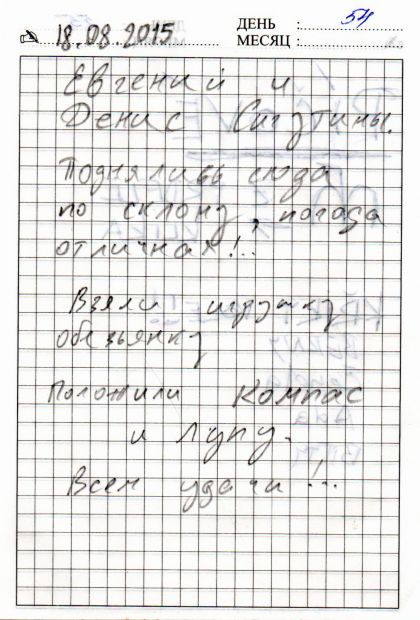 18.08.2015
ДЕНЬ : 54
МЕСЯЦ :
Евгений и
Денис Сигутины.
Поднялись сюда
по склону, погода
отличная!..
Взяли игрушку
обезьянку
Положили компас
и лупу.
Всем удачи!..